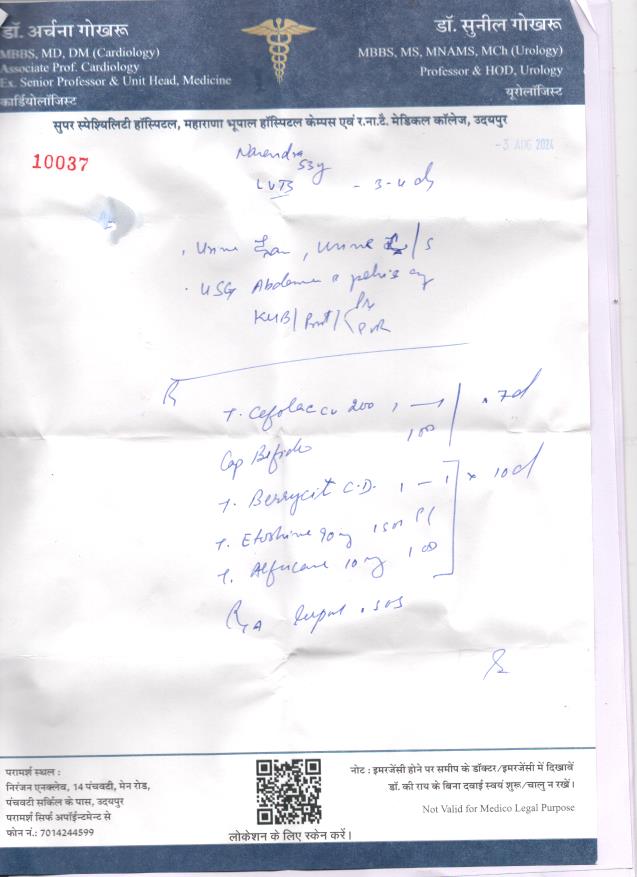 डॉ. अर्चना गोखरू
MBBS, MD, DM (Cardiology)
Associate Prof. Cardiology
Ex. Senior Professor & Unit Head, Medicine
कार्डियोलॉजिस्ट
डॉ. सुनील गोखरू
MBBS, MS, MNAMS, MCh (Urology)
Professor & HOD, Urology
यूरोलॉजिस्ट
सुपर स्पेश्यिलिटी हॉस्पिटल, महाराणा भूपाल हॉस्पिटल केम्पस एवं र.ना.टै. मेडिकल कॉलेज, उदयपुर
10037
-3 AUG 2024
Narendra
53y
LUTS - 3-4 d
Urine , Urine /S
USG Abdomen pelvis
KUB/ Prost/ Pre
PVR
T. Cefolac CV 200 1 — 1 x 7d
Cap Bifido 100
T. Berrycit C.D. 1 - 1 x 10d
T. Etoshine 90mg
T. 10mg 100
SOS
परामर्श स्थल :
निरंजन एनक्लेव, 14 पंचवटी, मेन रोड,
पंचवटी सर्किल के पास, उदयपुर
परामर्श सिर्फ अपॉईन्टमेन्ट से
फोन नं.: 7014244599
लोकेशन के लिए स्केन करें।
नोट : इमरजेंसी होने पर समीप के डॉक्टर/इमरजेंसी में दिखावें
डॉ. की राय के बिना दवाई स्वयं शुरू/चालु न रखें।
Not Valid for Medico Legal Purpose